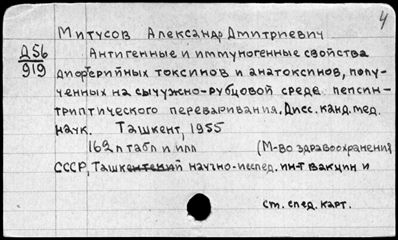 4
Митусов Александр Дмитриевич
Д56
919
Антигенные и иммуногенные свойства
дифтерийных токсинов и анатоксинов, полу-
ченных на сычужно-рубцовой среде пепсин-
триптического переваривания. Дисс. канд. мед.
наук. Ташкент, 1955
162 л табл и илл (М-во здравоохранения
СССР, Ташкентский научно-исслед. ин-т вакцин и
ст. след. карт.